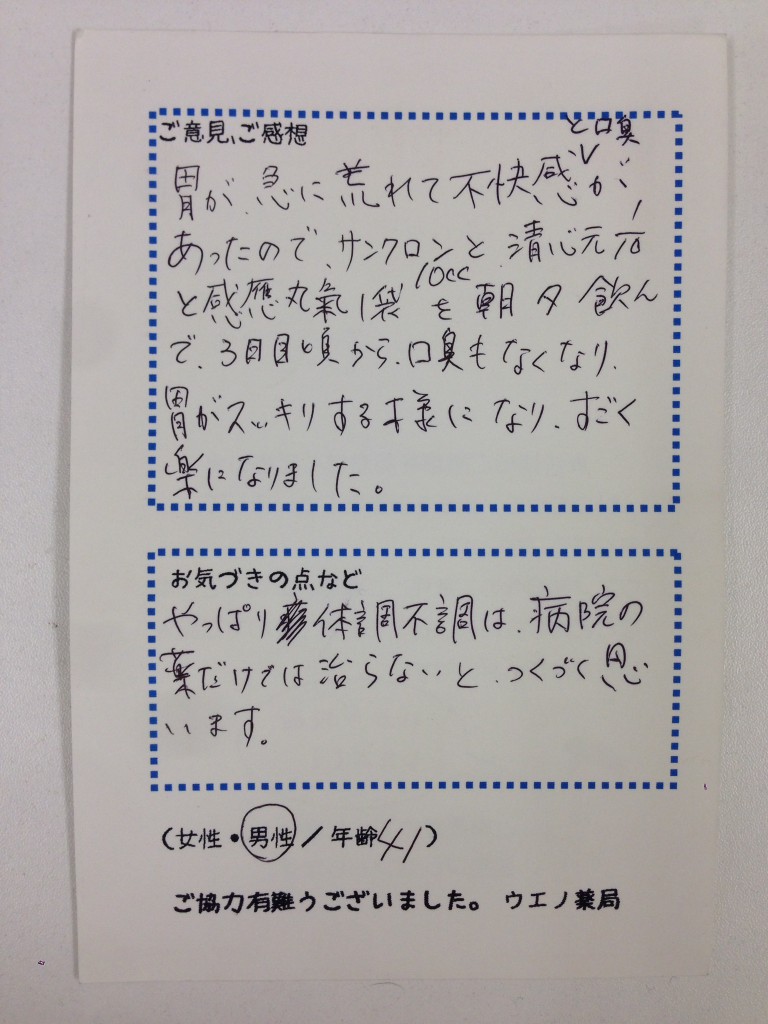 ご意見、ご感想
と口臭
胃が急に荒れて不快感が
あったので、サンクロンと清心元1
10cc
と感應丸氣1袋を朝夕飲ん
で、3日目頃から、口臭もなくなり、
胃がスッキリする様になり、すごく
楽になりました。
お気づきの点など
やっぱり体調不調は、病院の
薬だけでは治らないと、つくづく思
います。
(女性・男性/年齢41)
ご協力有難うございました。 ウエノ薬局